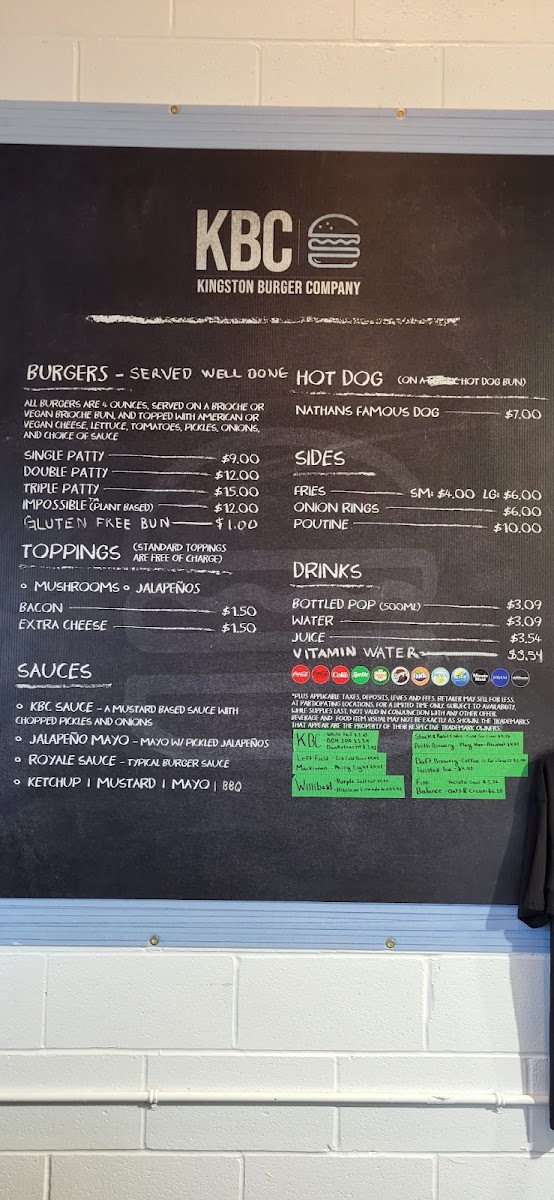 KBC
KINGSTON BURGER COMPANY
BURGERS - SERVED WELL DONE
ALL BURGERS ARE 4 OUNCES, SERVED ON A BRIOCHE OR
VEGAN BRIOCHE BUN, AND TOPPED WITH AMERICAN OR
VEGAN CHEESE, LETTUCE, TOMATOES, PICKLES, ONIONS,
AND CHOICE OF SAUCE
SINGLE PATTY $9.00
DOUBLE PATTY $12.00
TRIPLE PATTY $15.00
IMPOSSIBLE (PLANT BASED) $12.00
GLUTEN FREE BUN $1.00
TOPPINGS (STANDARD TOPPINGS
ARE FREE OF CHARGE)
MUSHROOMS JALAPEÑOS
BACON $1.50
EXTRA CHEESE $1.50
SAUCES
KBC SAUCE - A MUSTARD BASED SAUCE WITH
CHOPPED PICKLES AND ONIONS
JALAPEÑO MAYO - MAYO W/ PICKLED JALAPEÑOS
ROYALE SAUCE - TYPICAL BURGER SAUCE
KETCHUP | MUSTARD | MAYO | BBQ
HOT DOG (ON A HOT DOG BUN)
NATHANS FAMOUS DOG $7.00
SIDES
FRIES SM: $4.00 LG: $6.00
ONION RINGS $6.00
POUTINE $10.00
DRINKS
BOTTLED POP (500ML) $3.09
WATER $3.09
JUICE $3.54
VITAMIN WATER $3.54
*PLUS APPLICABLE TAXES, DEPOSITS, LEVIES AND FEES. RETAILER MAY SELL FOR LESS.
AT PARTICIPATING LOCATIONS. FOR A LIMITED TIME ONLY, SUBJECT TO AVAILABILITY,
WHILE SUPPLIES LAST, NOT VALID IN CONJUNCTION WITH ANY OTHER OFFER.
BEVERAGE AND FOOD ITEM VISUAL MAY NOT BE EXACTLY AS SHOWN. THE TRADEMARKS
THAT APPEAR ARE THE PROPERTY OF THEIR RESPECTIVE TRADEMARK OWNERS.
KBC
Left Field
Willibald
Perth Brewing
Daft Brewery
Twisted Tea
Balance